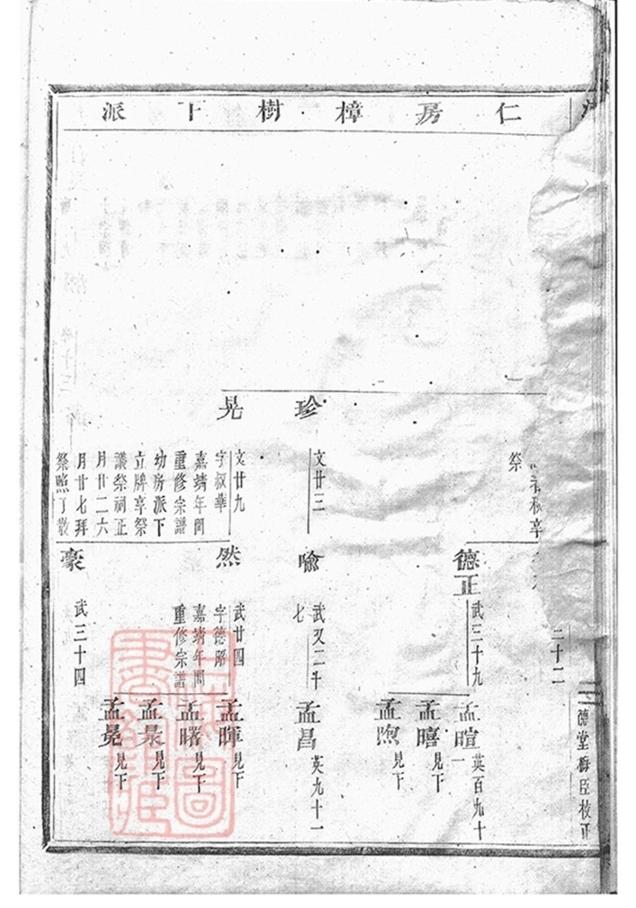 仁房樟樹下派
祭
德正
武三十九
孟暄
英百九十一
孟暿
見下
孟煦
見下
珍
文廿三
喻
武双二千七
孟昌
英九十一
晃
文廿九
字叔華
嘉靖年間
重修宗譜
幼房派下
立牌享祭
議祭祠正
月廿二六
月廿七拜
祭照丁散
然
武廿四
字德昭
嘉靖年間
重修宗譜
孟暉
見下
孟曙
見下
孟景
見下
孟晃
見下
豪
武三十四
二十二
德堂梅臣校正